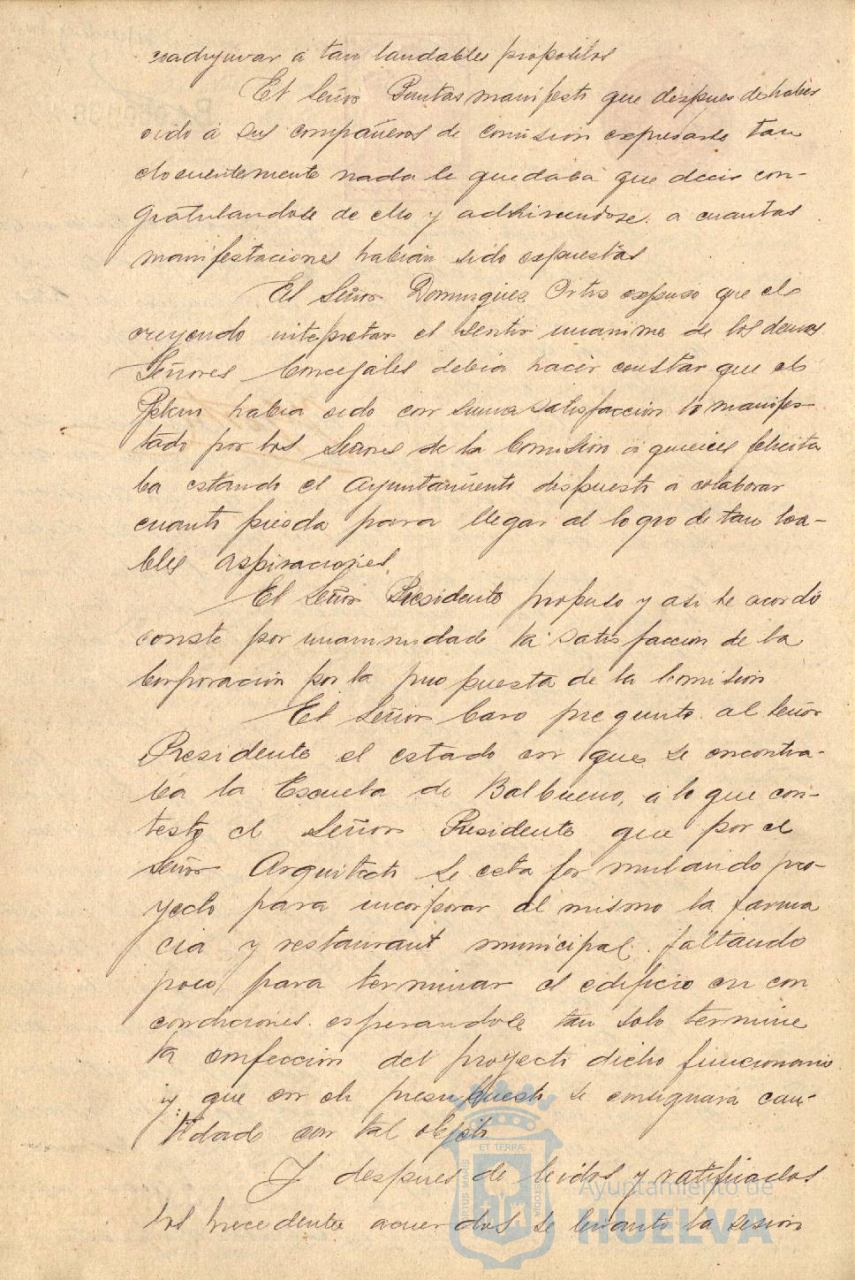 coadyuvar a tan laudables propositos
El Señor Puntas manifestó que despues de haber
oido a sus compañeros de comision expresarse tan
elocuentemente nada le quedaba que decir con-
gratulandose de ello y adhiriendose a cuantas
manifestaciones habian sido expuestas
El Señor Dominguez Ortiz expuso que el
creyendo intepretar el sentir unanime de los demas
Señores Concejales debia hacer constar que el
habia oido con suma satisfaccion lo manifes-
tado por los Señores de la Comision a quienes felicita
ba estando el Ayuntamiento dispuesto a colaborar
cuanto pueda para llegar al logro de tan loa-
bles aspiraciones.
El Señor Presidente propuso y asi se acordó
conste por unanimidad la satisfaccion de la
Corporación por la propuesta de la Comision
El Señor Caro pregunto al Señor
Presidente el estado en que se encontra-
ba la Escuela de Balbueno, a lo que con-
testó el Señor Presidente que por el
Señor Arquitecto se esta formulando pro-
yecto para incorporar al mismo la farma
cia y restaurant municipal faltando
poco para terminar el edificio en con
condiciones esperandose tan solo termine
la confección del proyecto dicho funcionario
y que en el presupuesto se consignara can-
tidad con tal objeto
Y despues de leidos y ratificados
los precedentes acuerdos se levanto la sesion
ET TERRAE
Ayuntamiento de
HUELVA